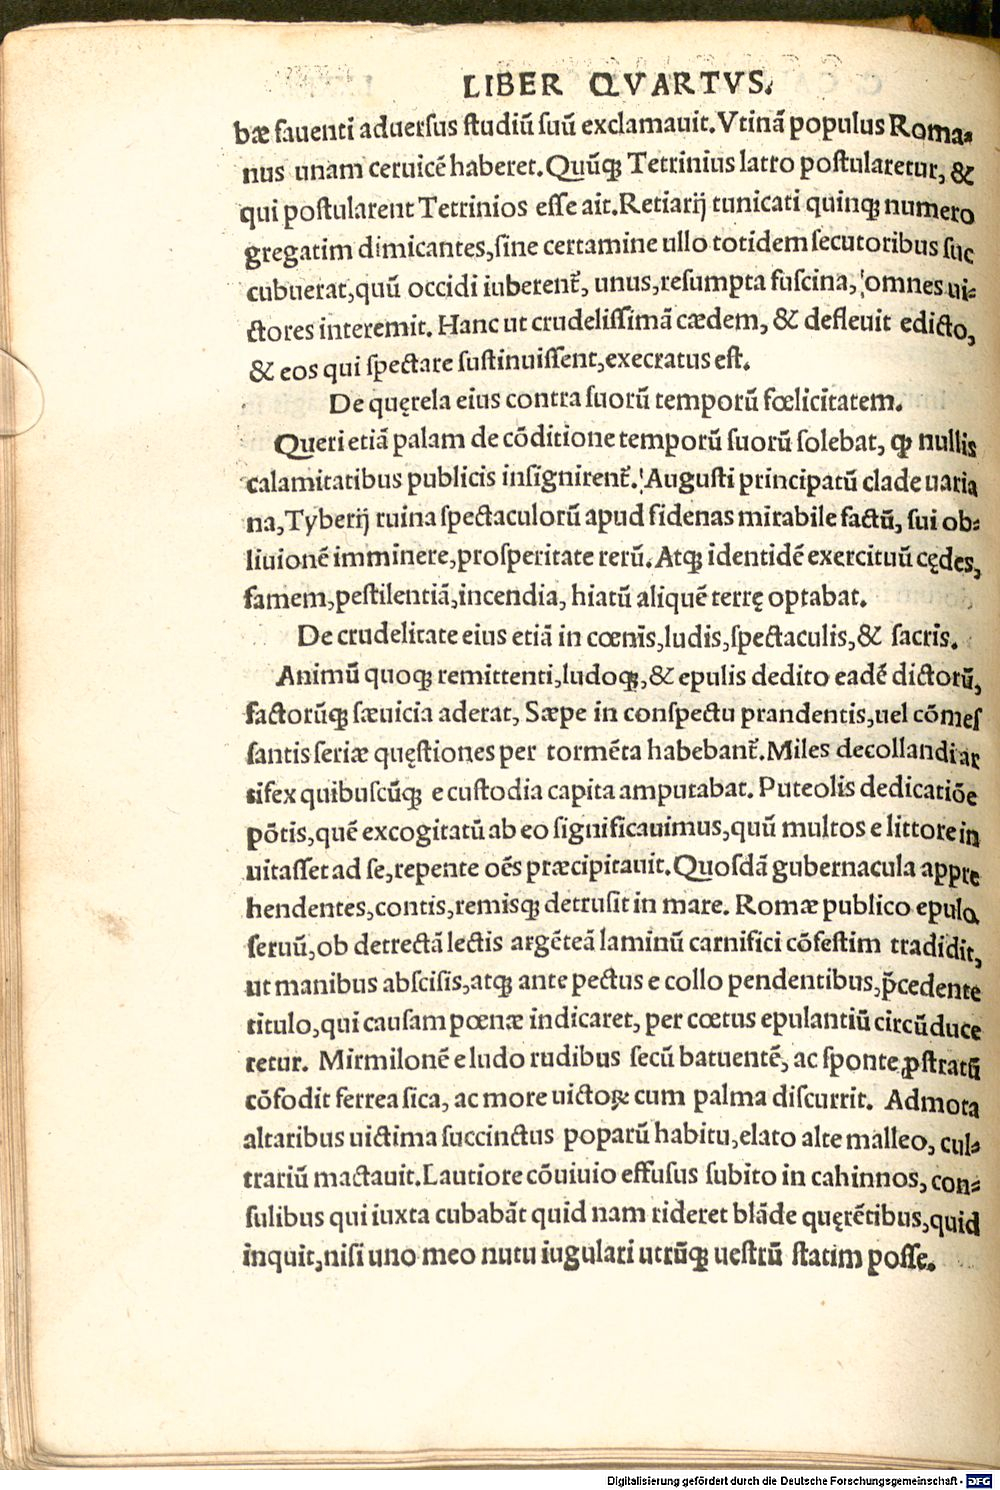 LIBER QVARTVS.
bæ fauenti aduersus studiũ suũ exclamauit. Vtinã populus Roma-
nus unam ceruicẽ haberet. Quũq; Tetrinius latro postularetur, &
qui postularent Tetrinios esse ait. Retiarij tunicati quinq; numero
gregatim dimicantes, sine certamine ullo totidem secutoribus suc
cubuerãt, quũ occidi iuberent̃, unus, resumpta fuscina, omnes ui-
ctores interemit. Hanc ut crudelissimã cædem, & defleuit edicto,
& eos qui spectare sustinuissent, execratus est.
De quęrela eius contra suorũ temporũ fœlicitatem.
Queri etiã palam de cõditione temporũ suorũ solebat, ꝙ nullis
calamitatibus publicis insignirent̃. Augusti principatũ clade uaria
na, Tyberij ruina spectaculorũ apud fidenas mirabile factũ, sui ob-
liuionẽ imminere, prosperitate rerũ. Atq; identidẽ exercituũ cędes,
famem, pestilentiã, incendia, hiatũ aliquẽ terrę optabat.
De crudelitate eius etiã in cœnis, ludis, spectaculis, & sacris.
Animũ quoq; remittenti, ludoq;, & epulis dedito eadẽ dictorũ,
factorũq; sæuicia aderat, Sæpe in conspectu prandentis, uel cõmes
santis seriæ quęstiones per tormẽta habebant̃. Miles decollandi ar
tifex quibuscũq; e custodia capita amputabat. Puteolis dedicatiõe
põtis, quẽ excogitatũ ab eo significauimus, quũ multos e littore in
uitasset ad se, repente oẽs præcipitauit. Quosdã gubernacula appre
hendentes, contis, remisq; detrusit in mare. Romæ publico epulo
seruũ, ob detrectã lectis argẽteã laminũ carnifici cõfestim tradidit,
ut manibus abscisis, atq; ante pectus e collo pendentibus, p̃cedente
titulo, qui causam pœnæ indicaret, per cœtus epulantiũ circũduce
retur. Mirmilonẽ e ludo rudibus secũ batuentẽ, ac sponte ꝓstratũ
cõfodit ferrea sica, ac more uictoꝝ cum palma discurrit. Admota
altaribus uictima succinctus poparũ habitu, elato alte malleo, cul-
trariũ mactauit. Lautiore cõuiuio effusus subito in cahinnos, con-
sulibus qui iuxta cubabãt quid nam rideret blãde quęrẽtibus, quid
inquit, nisi uno meo nutu iugulari utrũq; uestrũ statim posse.
Digitalisierung gefördert durch die Deutsche Forschungsgemeinschaft - DFG